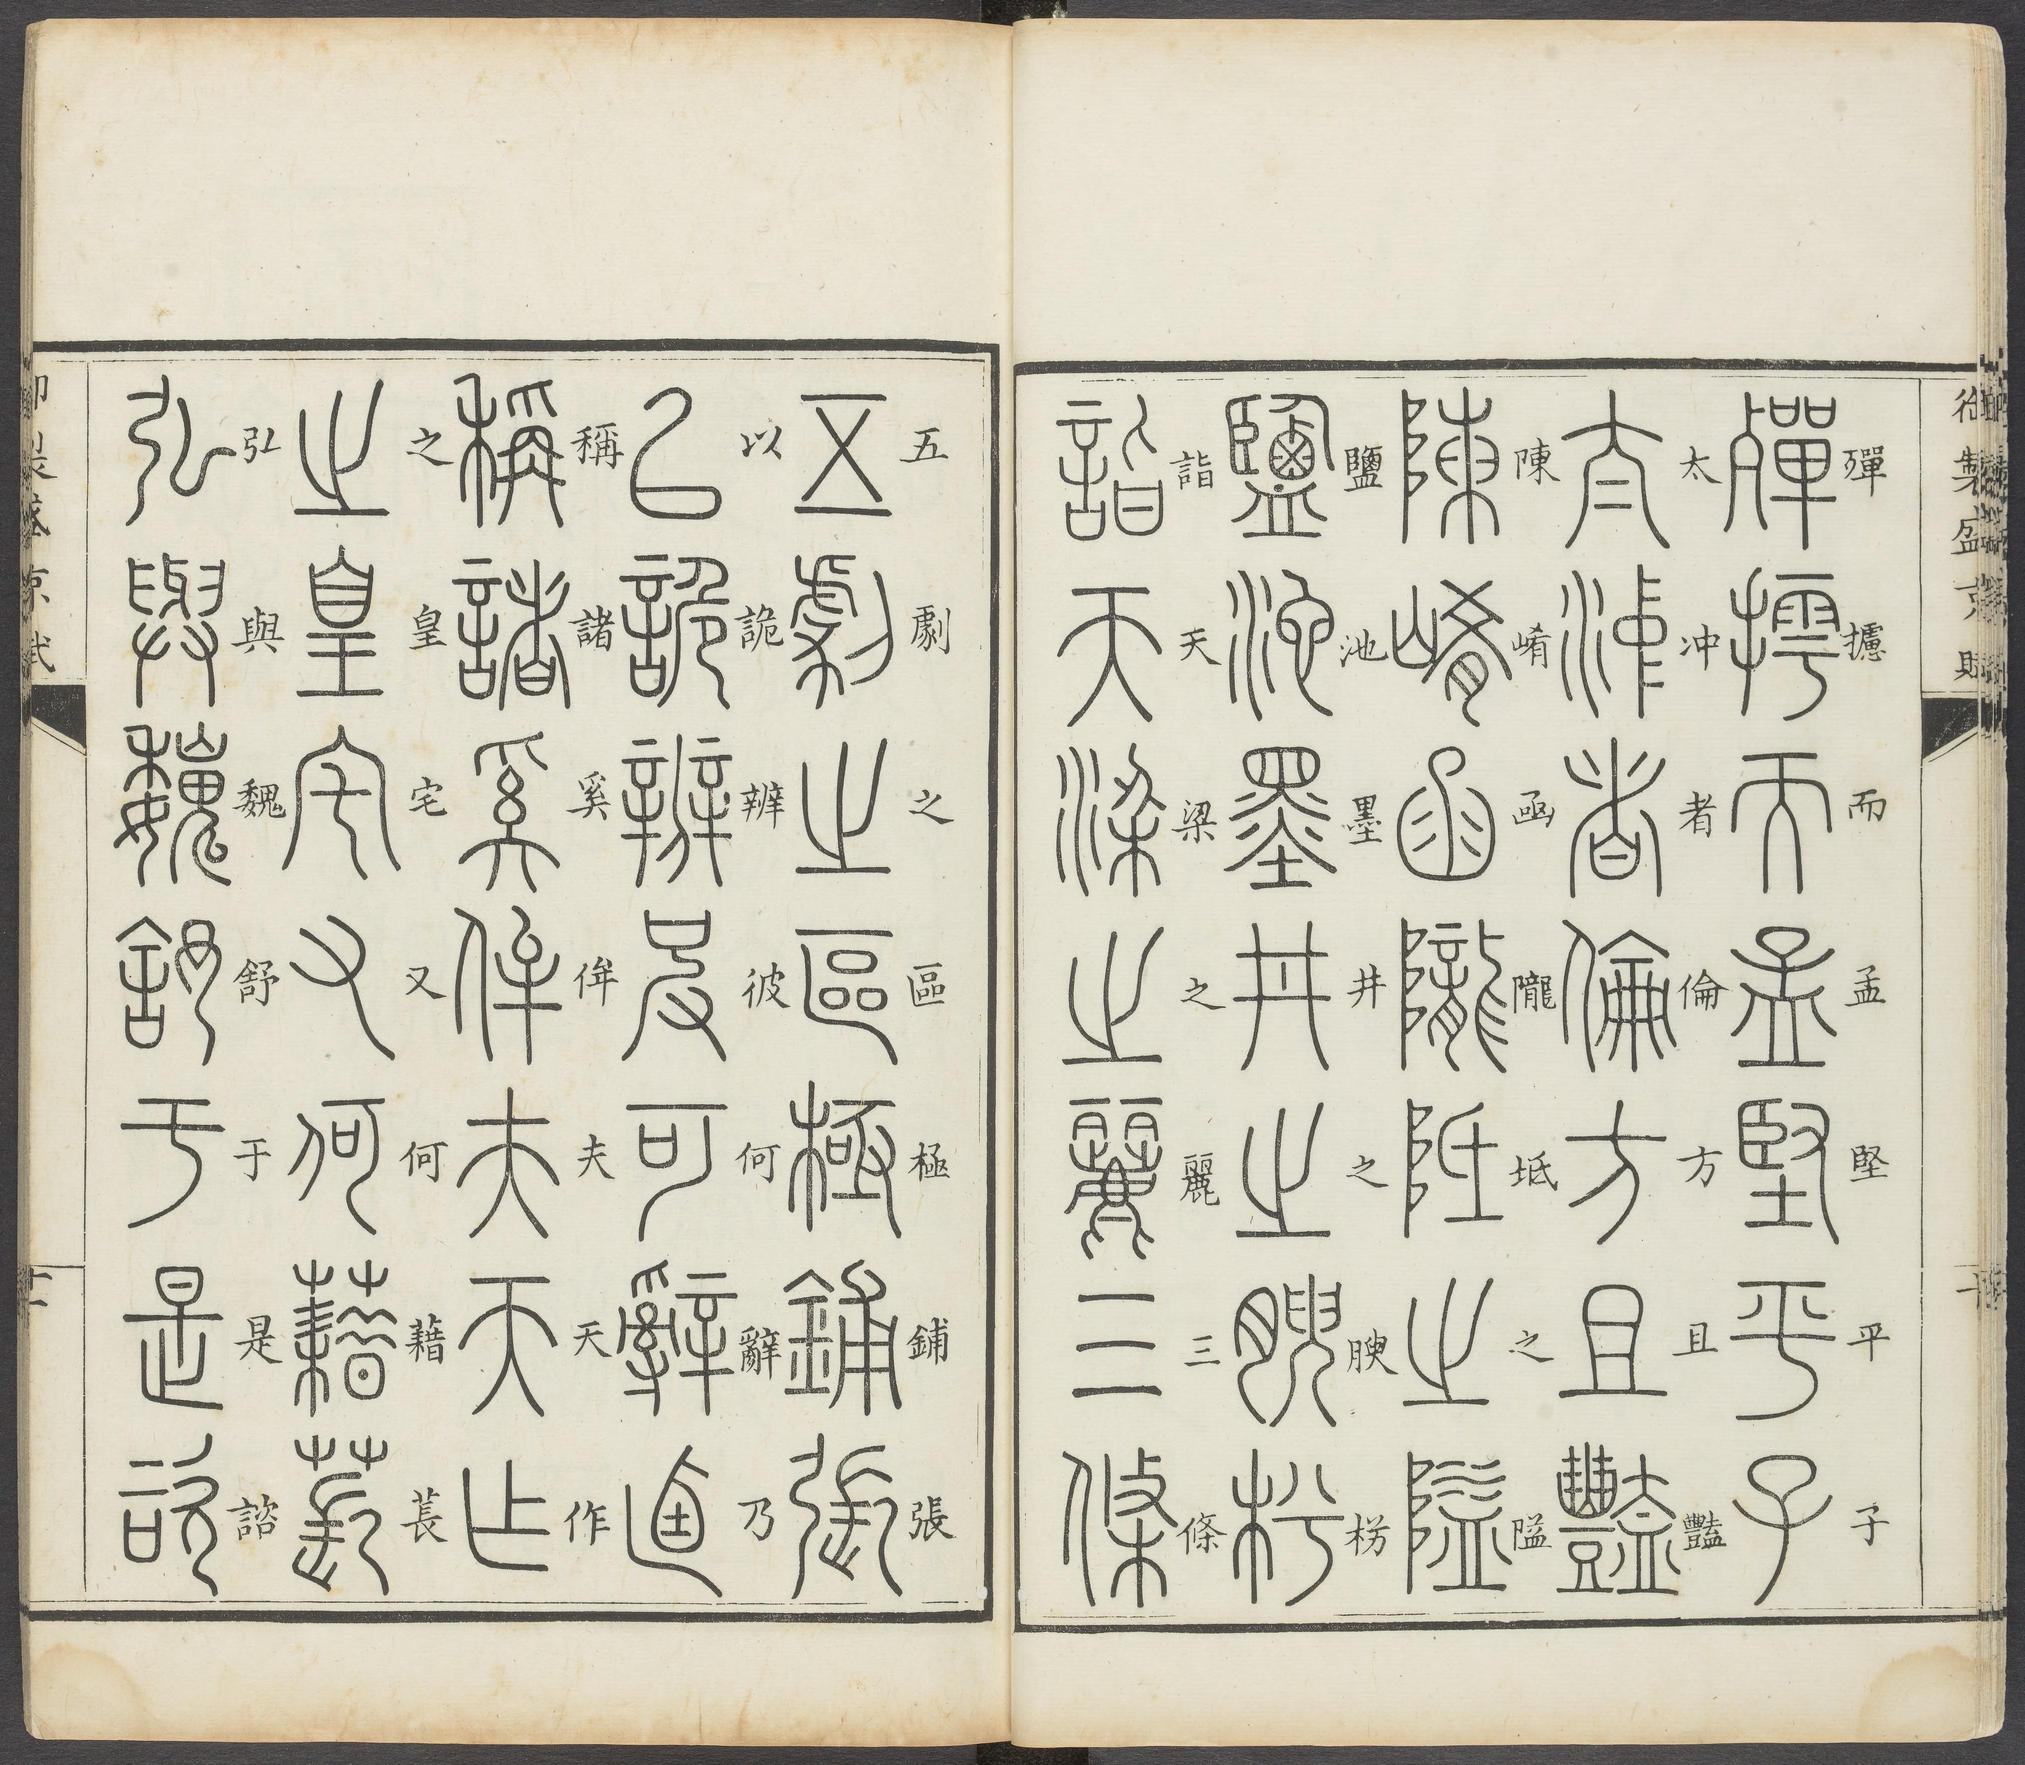 御製盛京賦
殫攄而孟堅平子
太冲者倫方且豔
陳崤函隴坻之隘
鹽池墨井之腴枌
詣天梁之麗三條
五劇之區極鋪張
以詭辨彼何辭乃
稱諸奚侔夫天作
之皇宅又何藉萇
弘與魏舒于是諮
御製盛京賦